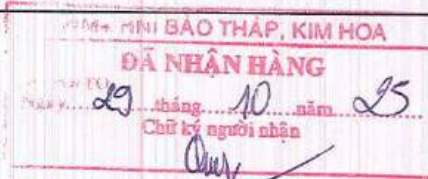 HNI BẢO THÁP, KIM HOA
ĐÃ NHẬN HÀNG
Ngày 29 tháng 10 năm 25
Chữ ký người nhận